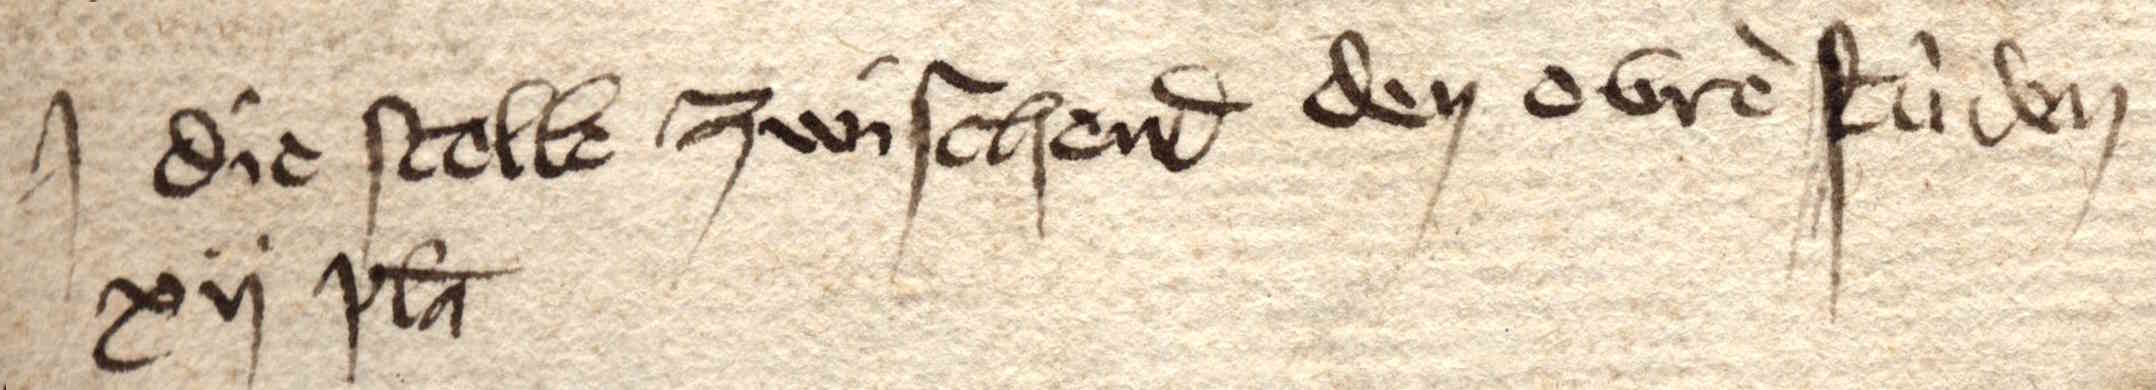 die stelle zwischend den obrē stuͦden
xij pla